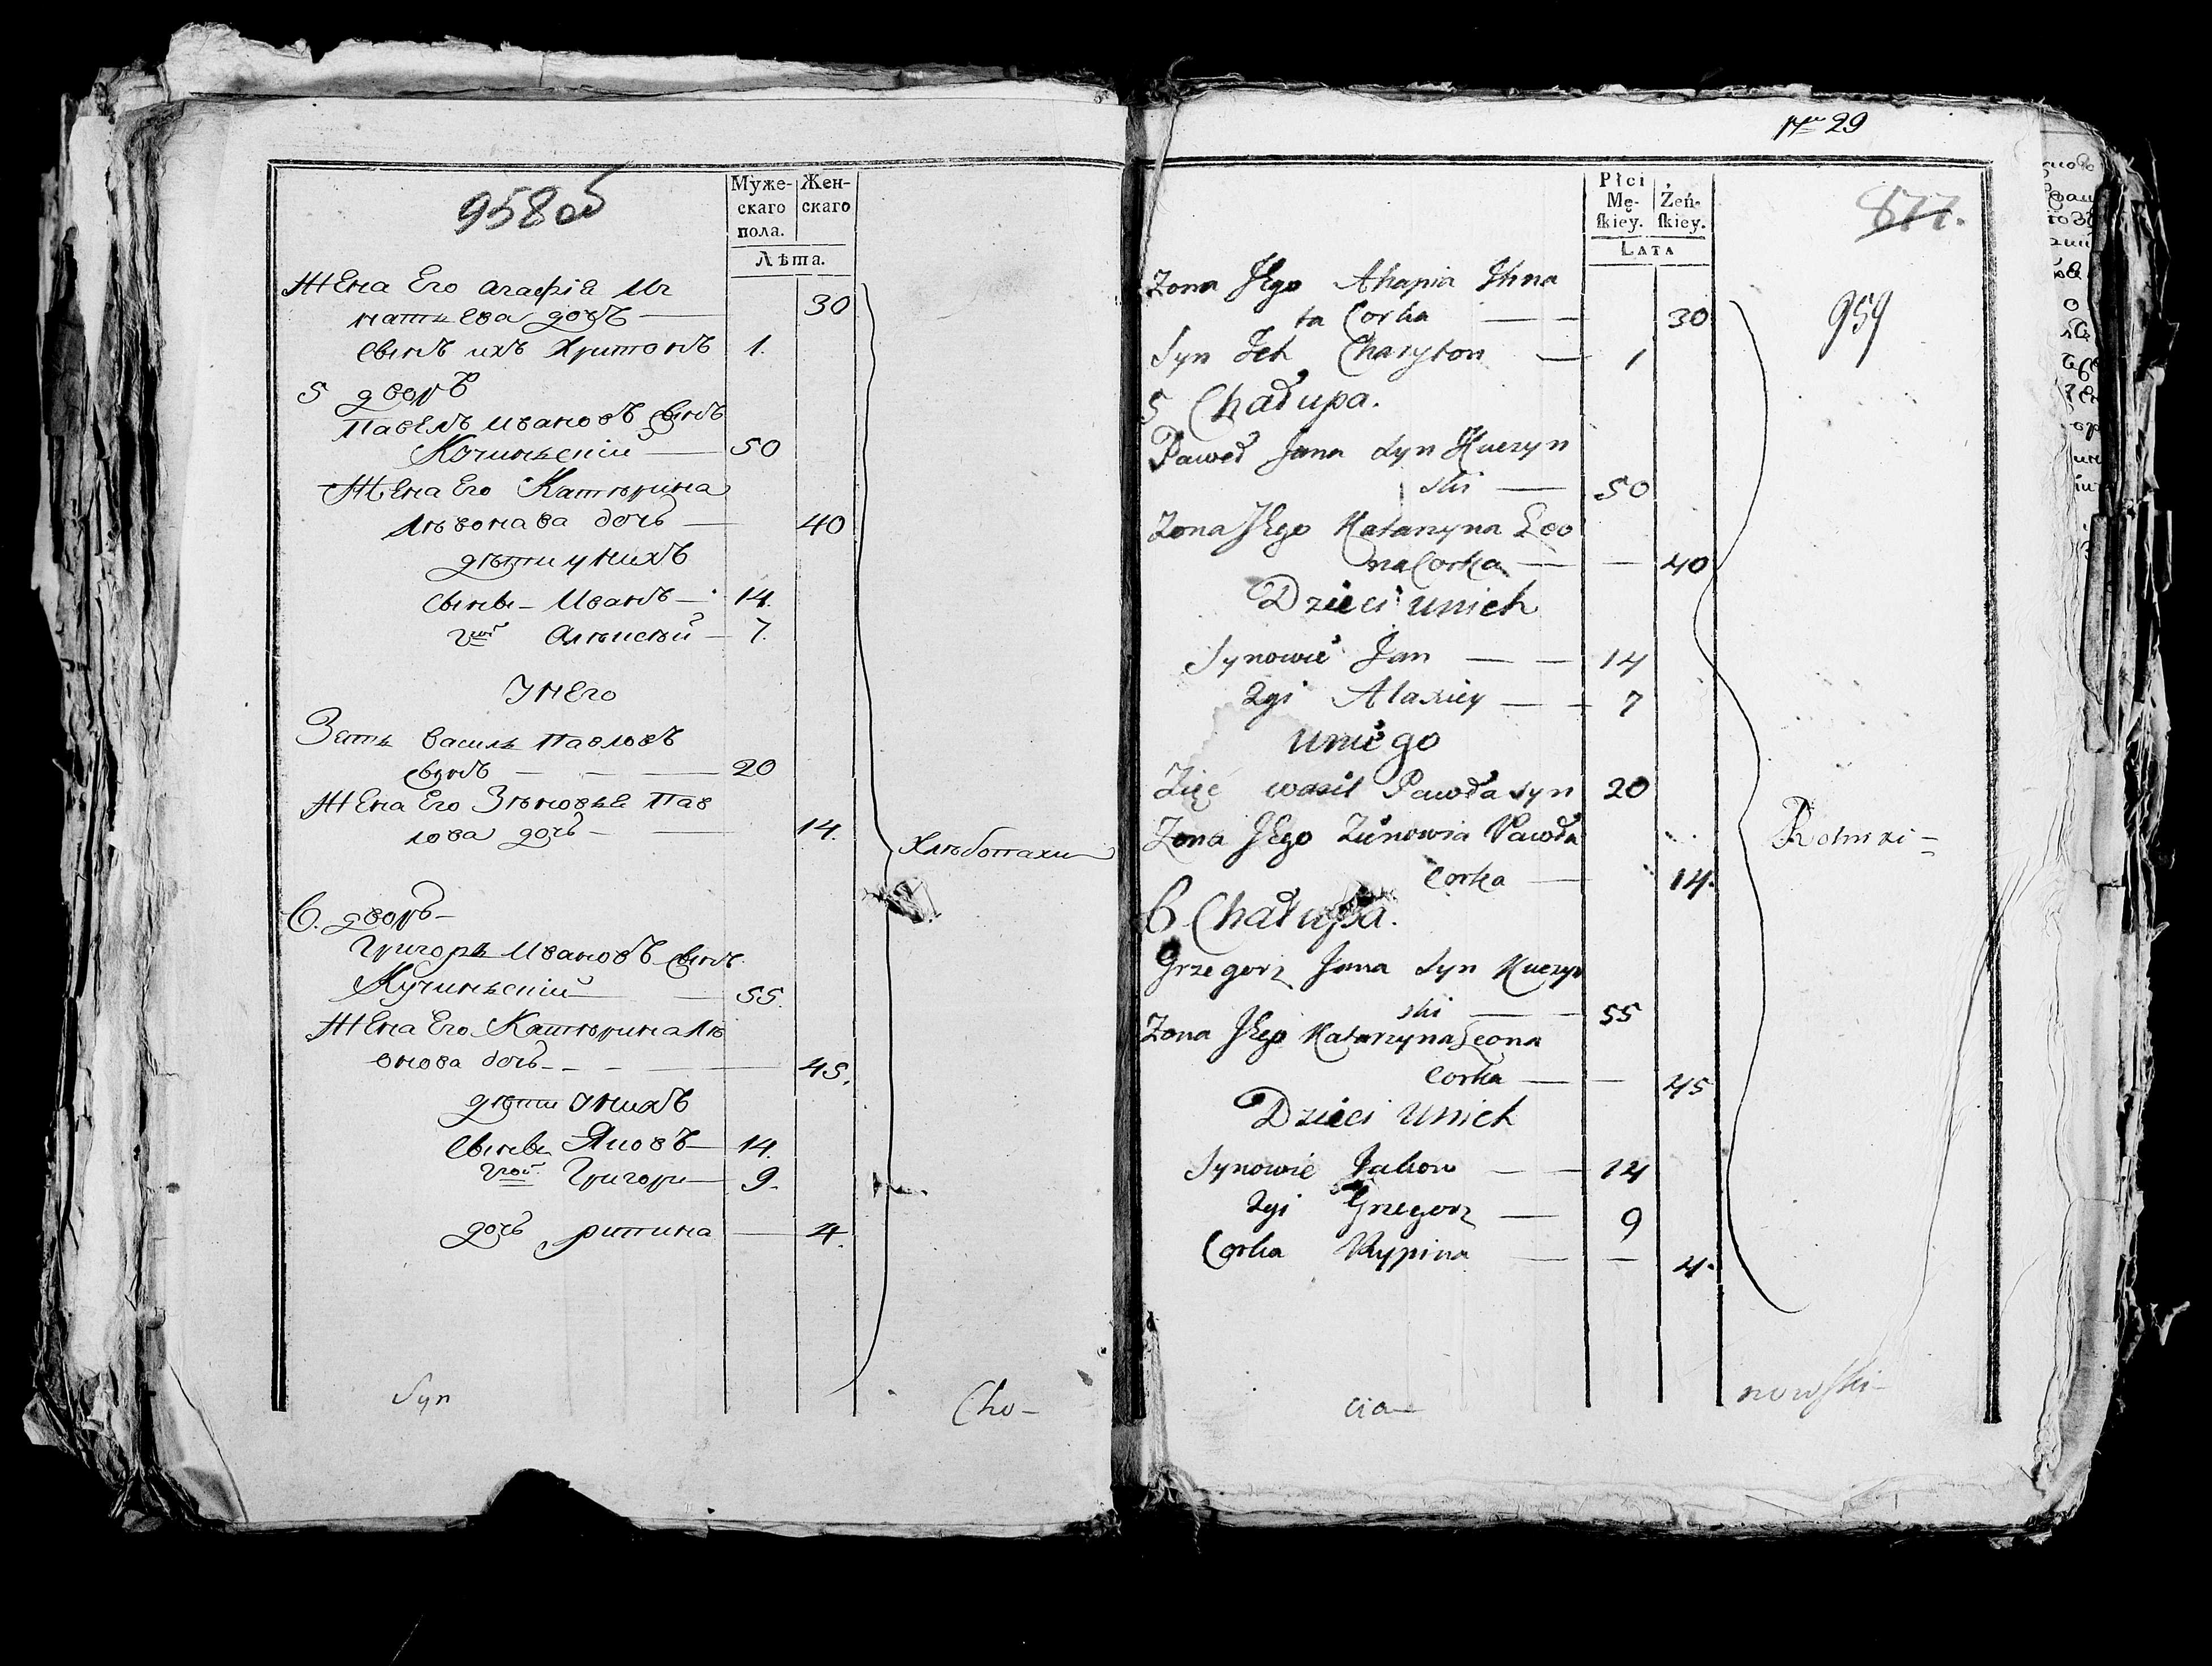 958 об
Муже-
скаго
пола.
Жен-
скаго
Лѣта.
Жена Его агафіа Иг
натьева дочъ — 30
Сынъ ихъ Хритонъ 1.
5 дворъ
Павелъ Ивановъ Сынъ
Кочиньскiй — 50
Жена Его Катѣрина
Лѣвонава дочъ — 40
дѣти у нихъ
Сынове — Иванъ — 14.
2ий Алѣксѣй — 7.
У нЕго
Зеть василь Павловъ
Сынъ — — — 20
Жена Его Зѣновье Пав
лова дочъ — — 14.
Хлѣбопахи
6. дворъ —
Григорь Ивановъ Сынъ
Кучиньскiй — — 55.
Жена Его Катѣрина Лѣ
внова дочъ — — — 45.
дѣти У нихъ
Сынове Яковъ — 14.
2гой Григори — 9.
дочъ рипина — 4.
Syn Cho-
Nro 29
Płci
Mę-
ſkiey.
Żeń-
ſkiey.
Lata
877.
959
Zona Jego Ahapia Ihna
ta Corka — — 30
Syn Ich Charyton — 1
5 Chałupa.
Paweł Jana Syn Kuczyn
ski — 50
Zona Jego Katarzyna Leo
na Corka — — 40
Dzieci u nich
Synowie Jan — — 14
2gi Alaxiey — — 7
u niego
Zięć wasil Pawła syn 20
Zona Jego Zinowia Pawła
Corka — 14.
Rolnizi =
6 Chałupa.
Grzegorz Jana Syn Kuczyn
ski — — 55
Zona Jego Katarzyna Leona
Corka — — 45
Dzieci u nich
Synowie Jakow — — 14
2gi Grzegorz — 9
Corka Rypina — — 4.
cia — nowski —